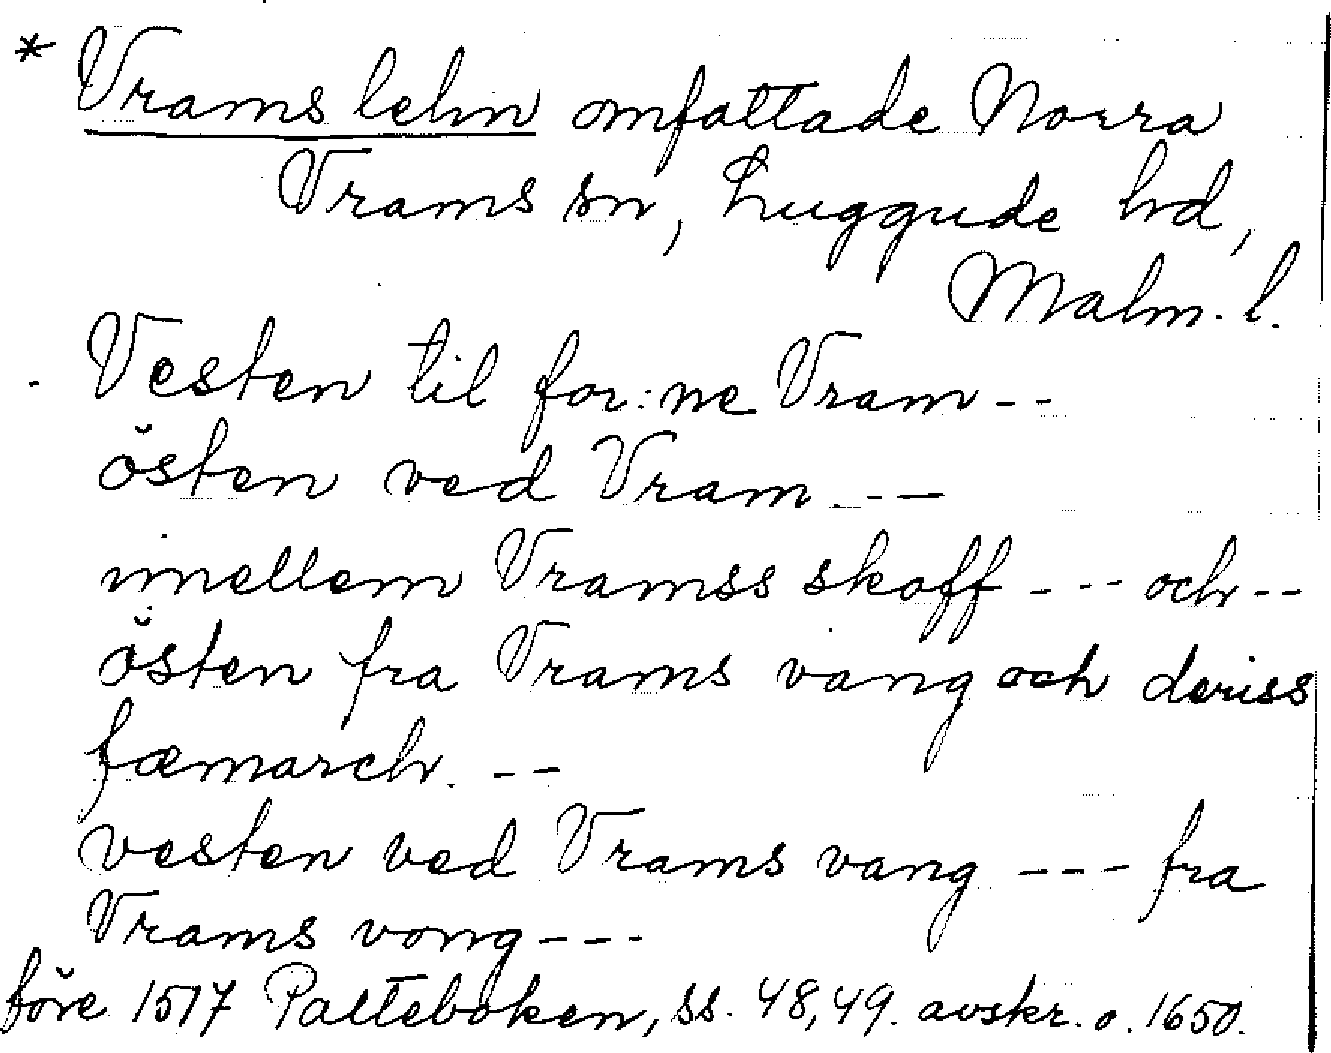 * Vrams lehn omfattade Norra
Vrams sn, Luggude hd,
Malm. l.
Vesten til for:ne Vram --
östen ved Vram ---
imellem Vramss skoff --- och --
östen fra Vrams vang och deriss
fæmarch. --
vesten ved Vrams vang --- fra
Vrams vong ---
före 1517 Palteboken, ss. 48,49. avskr. o. 1650.